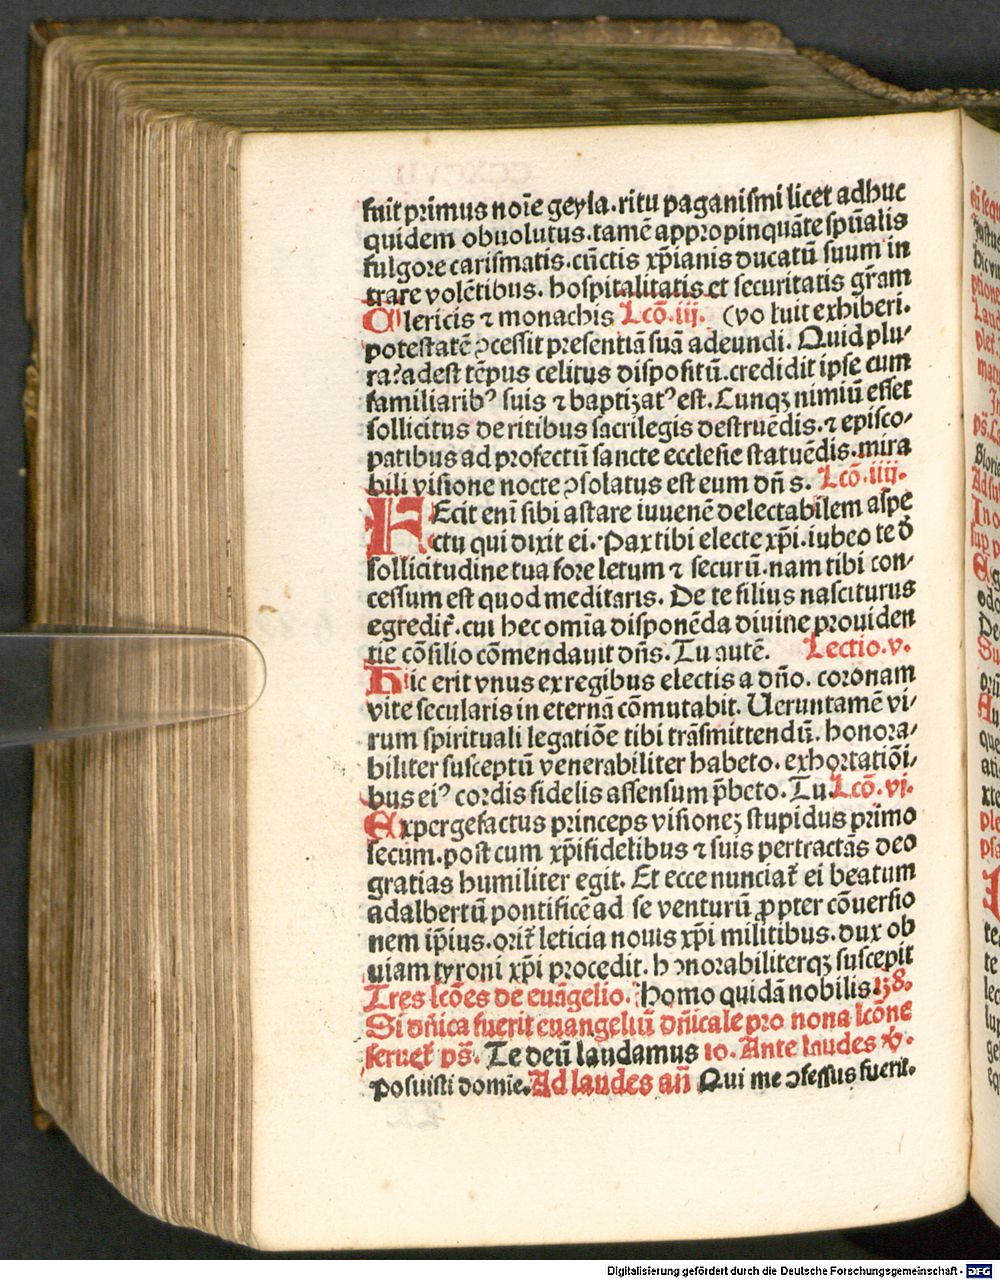 fuit primus noīe geyla. ritu paganismi licet adhuc
quidem obuolutus. tamē appropinquāte spūalis
fulgore carismatis. cūctis xp̄ianis ducatū suum in
trare volētibus. hospitalitatis et securitatis gr̄am
Clericis ⁊ monachis Lcō. iij. (vo luit exhiberi.
potestatē ꝯcessit presentiā suā adeundi. Quid plu-
ra? adest tēpus celitus dispositū. credidit ipse cum
familiaribꝰ suis ⁊ baptizatꝰ est. Cunqꝫ nimiū esset
sollicitus de ritibus sacrilegis destruēdis. ⁊ episco-
patibus ad profectū sancte ecclesie statuēdis. mira
bili visione nocte ꝯsolatus est eum dn̄s. Lcō. iiij.
FEcit eni sibi astare iuuenē delectabilem aspe
ctu qui dixit ei. Pax tibi electe xp̄i. iubeo te d̄
sollicitudine tua fore letum ⁊ securū. nam tibi con-
cessum est quod meditaris. De te filius nasciturus
egredit̄. cui hec omia disponēda diuine prouiden
tie cōsilio cōmendauit dn̄s. Tu autē. Lectio. v.
Hic erit vnus ex regibus electis a dn̄o. coronam
vite secularis in eternā cōmutabit. Ueruntamē vi-
rum spirituali legatiōe tibi trāsmittendū. honora-
biliter susceptū venerabiliter habeto. exhortatiōi-
bus eiꝰ cordis fidelis assensum p̄beto. Tu. Lcō. vj.
Expergefactus princeps visioneꝫ stupidus primo
secum. post cum xp̄ifidelibus ⁊ suis pertractās deo
gratias humiliter egit. Et ecce nunciat̄ ei beatum
adalbertū pontificē ad se venturū ꝓpter cōuersio
nem ip̄ius. orit̄ leticia nouis xp̄i militibus. dux ob
uiam tyroni xp̄i procedit. honorabiliterqꝫ suscepit
Tres lcōes de euāgelio. Homo quidā nobilis. 138.
Si dn̄ica fuerit euangeliū dn̄icale pro nona lcōne
seruet̄ ps̄. Te deū laudamus 10. Ante laudes ℣.
Posuisti domie. Ad laudes an̄ Qui me ꝯfessus fuerit.